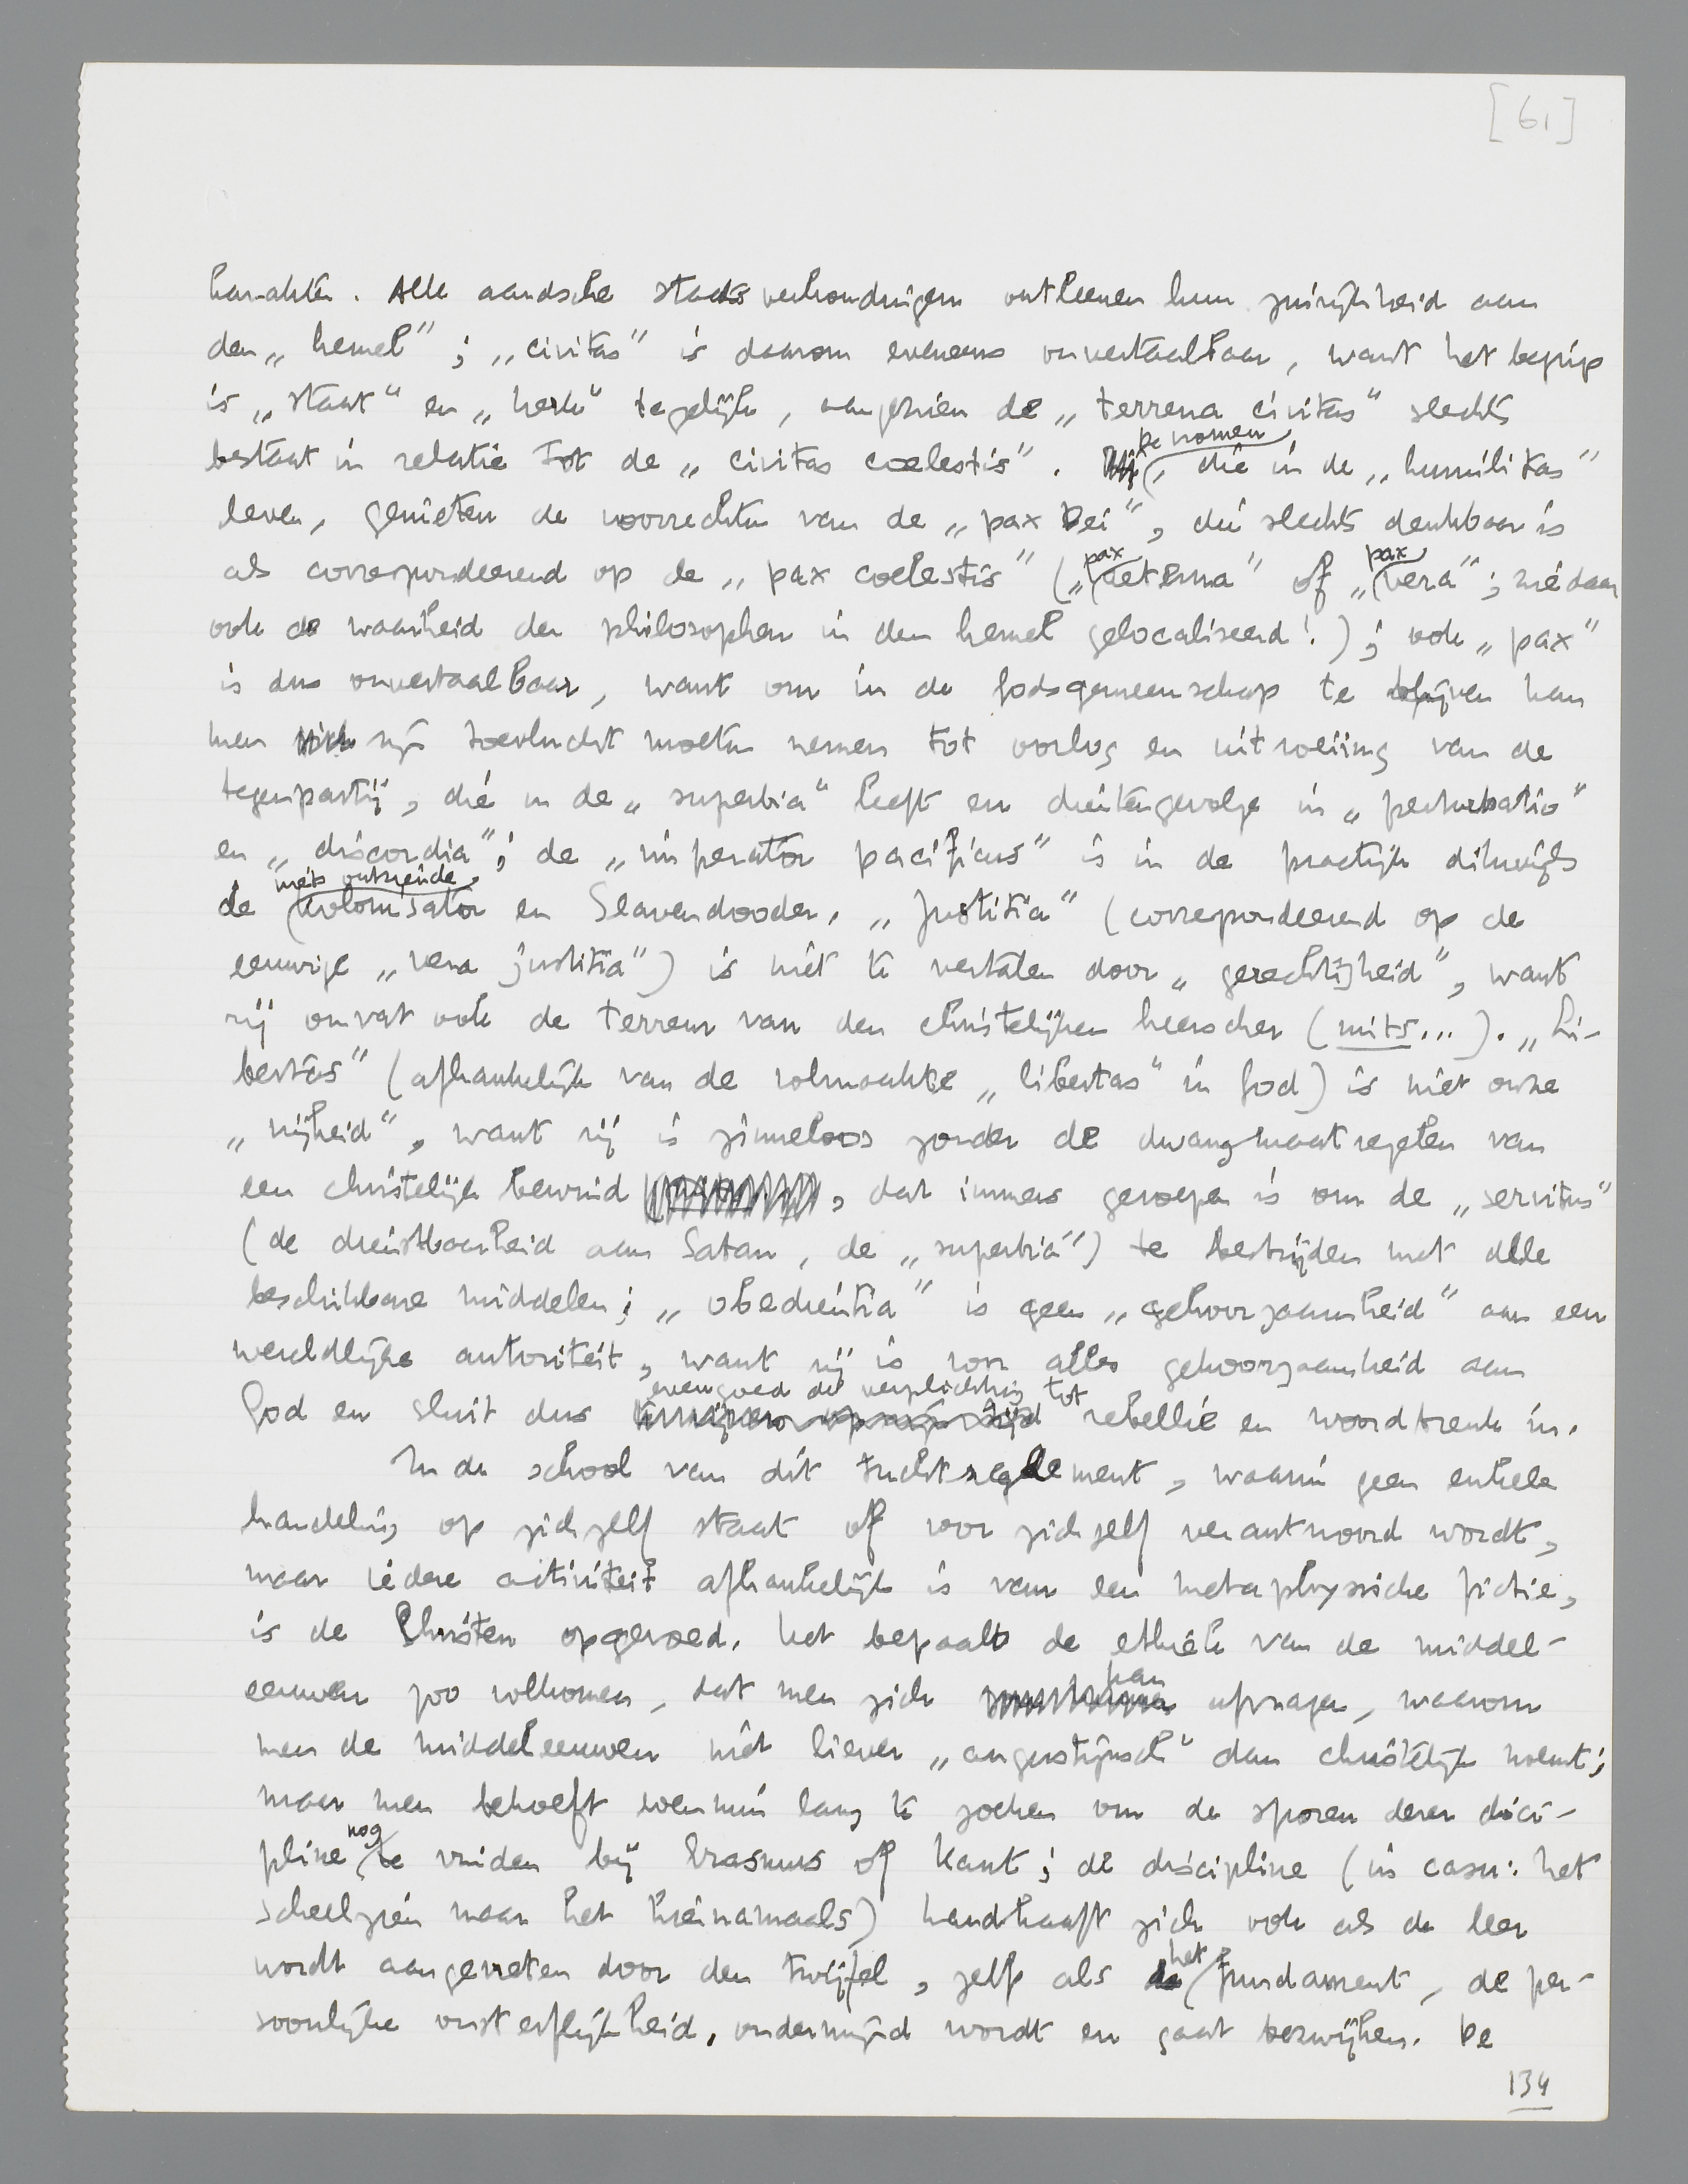 [61]
karakter. Alle aardsche staatsverhoudingen ontleenen hun zuinigheid aan
den „hemel”; „civitas” is daarom eveneens onvertaalbaar, want het begrip
is „staat” en „kerk” tegelijk, aangezien de „terrena civitas” slechts
bestaat in relatie tot de „civitas coelestis”. De vromen, die in de „humilitas”
leven, genieten de voorrechten van de „pax Dei”, die slechts denkbaar is
als correspondeerend op de „pax coelestis” („pax aeterna” of „pax vera”; zie daar
ook de waarheid der philosophen in den hemel gelocaliseerd!); ook „pax”
is dus onvertaalbaar, want om in de Godsgemeenschap te blijven kan
men zijn toevlucht moeten nemen tot oorlog en uitroeiing van de
tegenpartij, die in de „superbia” leeft en dientengevolge in „perturbatio”
en „discordia”; de „imperator pacificus” is in de practijk dikwijls
de niets ontziende kolonisator en Slavendooder. „Justitia” (correspondeerend op de
eeuwige „vera justitia”) is niet te vertalen door „gerechtigheid”, want
zij omvat ook de terreur van den christelijken heerscher (mits...). „Li-
bertas” (afhankelijk van de volmaakte „libertas” in God) is niet onze
„vrijheid”, want zij is zinneloos zonder de dwangmaatregelen van
een christelijk bewind, dat immers geroepen is om de „servitus”
(de dienstbaarheid aan Satan, de „superbia”) te bestrijden met alle
beschikbare middelen; „obedientia” is geen „gehoorzaamheid” aan een
wereldlijke autoriteit, want zij is voor alles gehoorzaamheid aan
God en sluit dus evengoed de verplichting tot rebellie en woordbreuk in.
In de school van dit tuchtreglement, waarin geen enkele
handeling op zichzelf staat of voor zichzelf verantwoord wordt,
maar iedere activiteit afhankelijk is van een metaphysische fictie,
is de Christen opgevoed. Het bepaalt de ethiek van de middel-
eeuwen zoo volkomen, dat men zich kan afvragen, waarom
men de middeleeuwen niet liever „augustijnsch” dan christelijk noemt;
maar men behoeft evenmin lang te zoeken om de sporen dezer disci-
pline nog te vinden bij Erasmus of Kant; de discipline (in casu: het
scheelzien naar het hiernamaals) handhaaft zich ook als de leer
wordt aangevreten door den twijfel, zelfs als het fundament, de per-
soonlijke onsterfelijkheid, ondermijnd wordt en gaat bezwijken. De
134